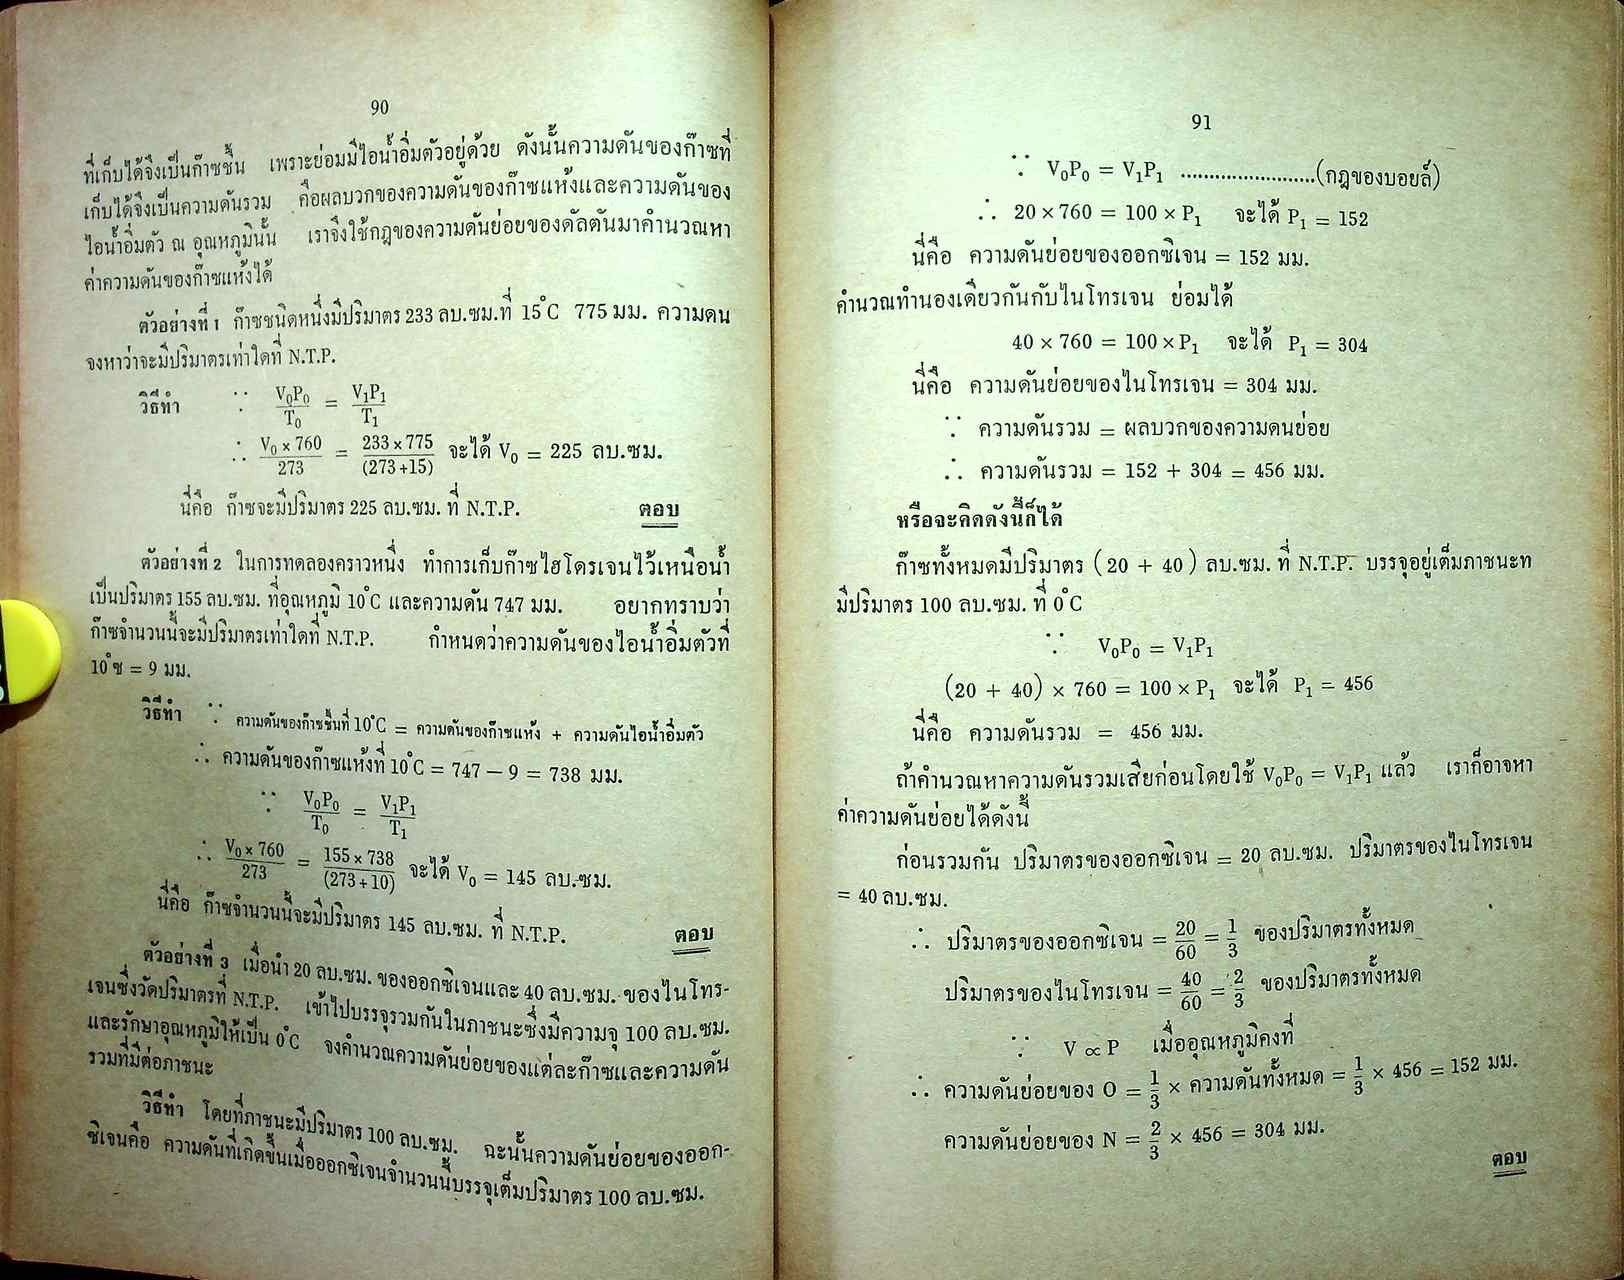 90
ที่เก็บได้จึงเป็นก๊าซชื้น เพราะย่อมมีไอน้ำอิ่มตัวอยู่ด้วย ดังนั้นความดันของก๊าซที่
เก็บได้จึงเป็นความดันรวม คือผลบวกของความดันของก๊าซแห้งและความดันของ
ไอน้ำอิ่มตัว ณ อุณหภูมินั้น เราจึงใช้กฎของความดันย่อยของดัลตันมาคำนวณหา
ค่าความดันของก๊าซแห้งได้
ตัวอย่างที่ 1 ก๊าซชนิดหนึ่งมีปริมาตร 233 ลบ.ซม.ที่ 15°C 775 มม. ความดน
จงหาว่าจะมีปริมาตรเท่าใดที่ N.T.P.
วิธีทำ ∵ V₀P₀/T₀ = V₁P₁/T₁
∴ V₀ × 760/273 = 233 × 775/(273 + 15) จะได้ V₀ = 225 ลบ.ซม.
นี่คือ ก๊าซจะมีปริมาตร 225 ลบ.ซม. ที่ N.T.P. ตอบ
ตัวอย่างที่ 2 ในการทดลองคราวหนึ่ง ทำการเก็บก๊าซไฮโดรเจนไว้เหนือน้ำ
เป็นปริมาตร 155 ลบ.ซม. ที่อุณหภูมิ 10°C และความดัน 747 มม. อยากทราบว่า
ก๊าซจำนวนนี้จะมีปริมาตรเท่าใดที่ N.T.P. กำหนดว่าความดันของไอน้ำอิ่มตัวที่
10°ซ = 9 มม.
วิธีทำ ∵ ความดันของก๊าซชื้นที่ 10°C = ความดันของก๊าซแห้ง + ความดันไอน้ำอิ่มตัว
∴ ความดันของก๊าซแห้งที่ 10°C = 747 — 9 = 738 มม.
∵ V₀P₀/T₀ = V₁P₁/T₁
∴ V₀ × 760/273 = 155 × 738/(273 + 10) จะได้ V₀ = 145 ลบ.ซม.
นี่คือ ก๊าซจำนวนนี้จะมีปริมาตร 145 ลบ.ซม. ที่ N.T.P. ตอบ
ตัวอย่างที่ 3 เมื่อนำ 20 ลบ.ซม. ของออกซิเจนและ 40 ลบ.ซม. ของไนโทร-
เจนซึ่งวัดปริมาตรที่ N.T.P. เข้าไปบรรจุรวมกันในภาชนะซึ่งมีความจุ 100 ลบ.ซม.
และรักษาอุณหภูมิให้เป็น 0°C จงคำนวณความดันย่อยของแต่ละก๊าซและความดัน
รวมที่มีต่อภาชนะ
วิธีทำ โดยที่ภาชนะมีปริมาตร 100 ลบ.ซม. ฉะนั้นความดันย่อยของออก-
ซิเจนคือ ความดันที่เกิดขึ้นเมื่อออกซิเจนจำนวนนี้บรรจุเต็มปริมาตร 100 ลบ.ซม.
91
∵ V₀P₀ = V₁P₁ ........................(กฎของบอยล์)
∴ 20 × 760 = 100 × P₁ จะได้ P₁ = 152
นี่คือ ความดันย่อยของออกซิเจน = 152 มม.
คำนวณทำนองเดียวกันกับไนโทรเจน ย่อมได้
40 × 760 = 100 × P₁ จะได้ P₁ = 304
นี่คือ ความดันย่อยของไนโทรเจน = 304 มม.
∵ ความดันรวม = ผลบวกของความดนย่อย
∴ ความดันรวม = 152 + 304 = 456 มม.
หรือจะคิดดังนี้ก็ได้
ก๊าซทั้งหมดมีปริมาตร (20 + 40) ลบ.ซม. ที่ N.T.P. บรรจุอยู่เต็มภาชนะท
มีปริมาตร 100 ลบ.ซม. ที่ 0°C
∵ V₀P₀ = V₁P₁
(20 + 40) × 760 = 100 × P₁ จะได้ P₁ = 456
นี่คือ ความดันรวม = 456 มม.
ถ้าคำนวณหาความดันรวมเสียก่อนโดยใช้ V₀P₀ = V₁P₁ แล้ว เราก็อาจหา
ค่าความดันย่อยได้ดังนี้
ก่อนรวมกัน ปริมาตรของออกซิเจน = 20 ลบ.ซม. ปริมาตรของไนโทรเจน
= 40 ลบ.ซม.
∴ ปริมาตรของออกซิเจน = 20/60 = 1/3 ของปริมาตรทั้งหมด
ปริมาตรของไนโทรเจน = 40/60 = 2/3 ของปริมาตรทั้งหมด
∵ V ∝ P เมื่ออุณหภูมิคงที่
∴ ความดันย่อยของ O = 1/3 × ความดันทั้งหมด = 1/3 × 456 = 152 มม.
ความดันย่อยของ N = 2/3 × 456 = 304 มม.
ตอบ